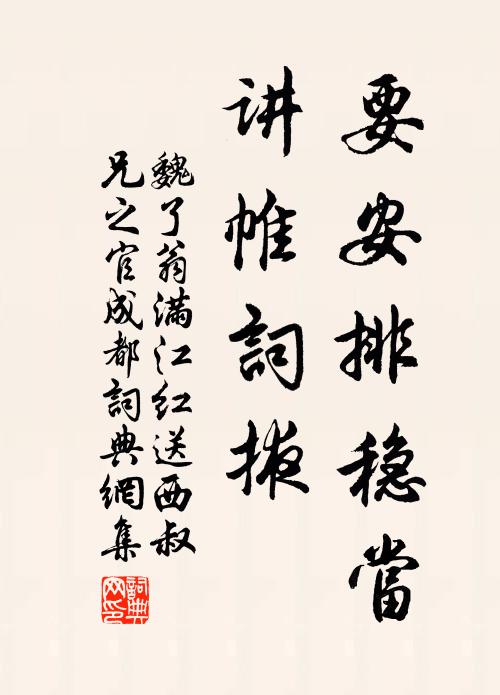 要安排稳當
讲帷詞掖
魏了翁满江红送西叔
兄之官成都詞典網集
詞典
网印